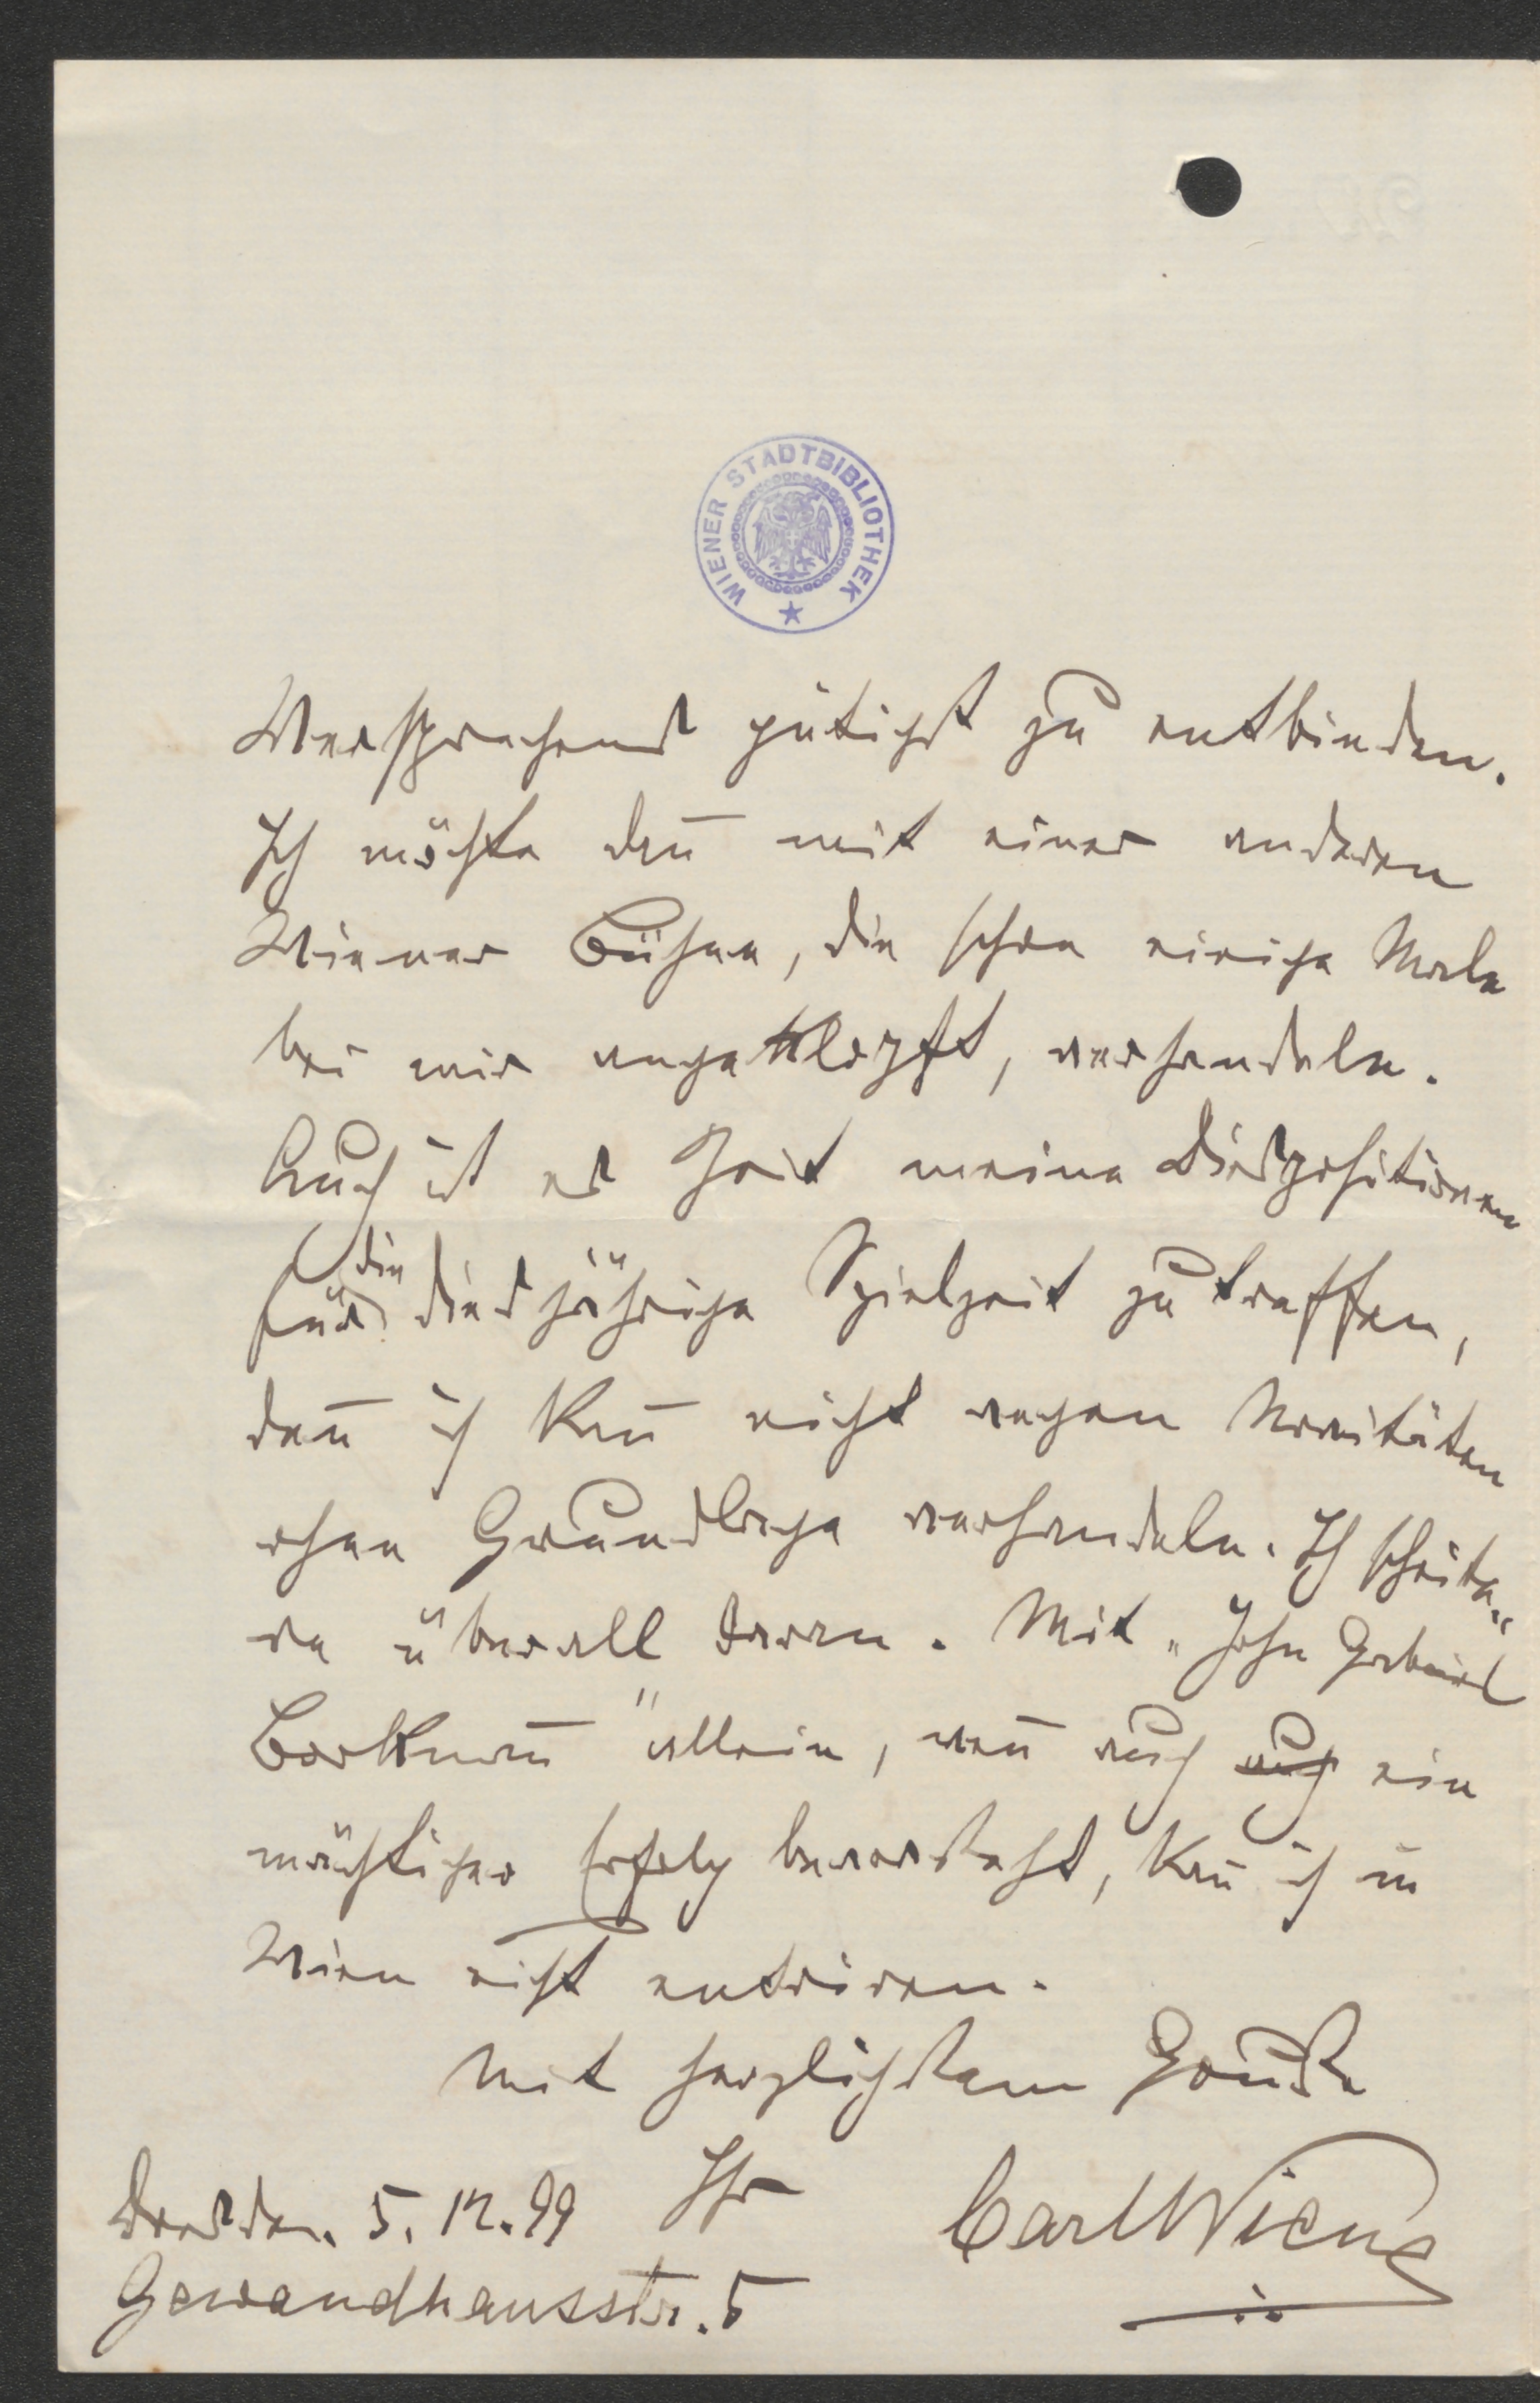 WIENER STADTBIBLIOTHEK
Versprechens gütigst zu entbinden.
Ich möchte dan̄ mit einer anderen
Wiener Bühne, die schon einige Male
bei mir angeklopft, verhandeln.
Auch ist es Zeit meine Dispositionen
für die diesjährige Spielzeit zu treffen,
den̄ ich kan̄ nicht wegen Novitäten
ohne Grundlage verhandeln. Ich scheite-
re überall daran. Mit „John Gabriel
Borkman̄" allein, wen̄ auch auch ein
mächtiger Erfolg bevorsteht, kan̄ ich in
Wien nicht entriren.
Mit herzlichstem Gruße
Ihr
Dresden. 5. 12. 99
Carl Wiene
Gewandhausstr. 5